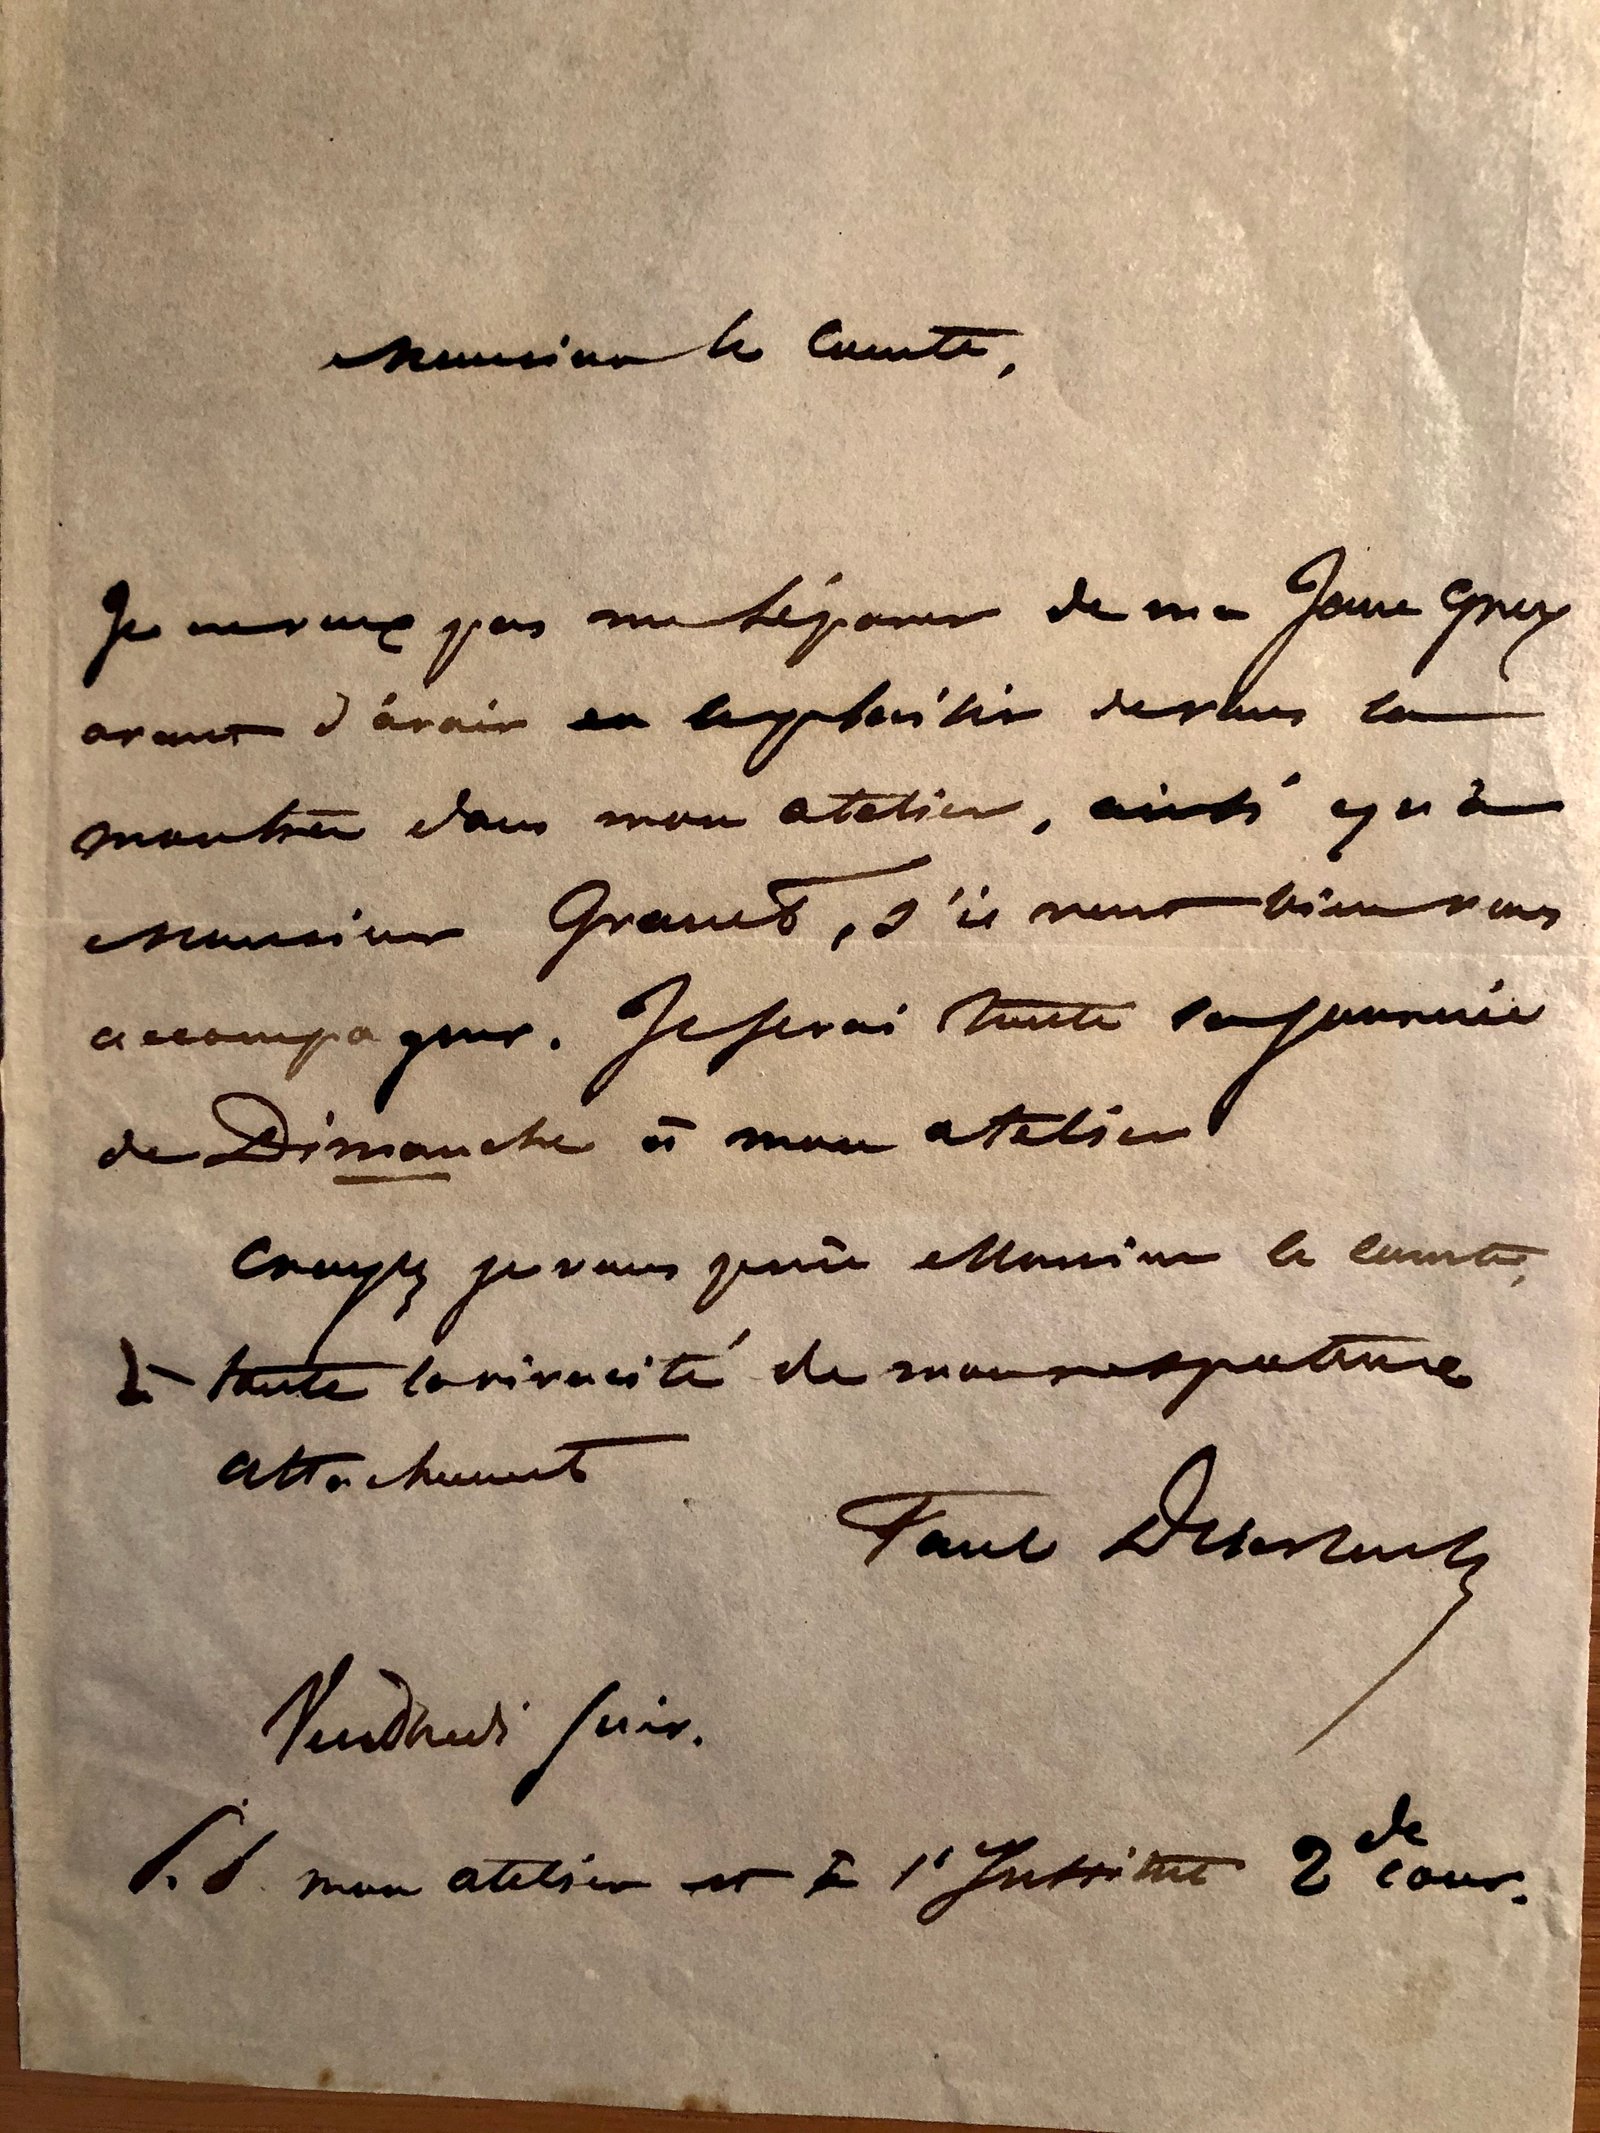 Monsieur le Comte,
Je ne veux pas me séparer de ma Jane Grey
avant d'avoir eu le plaisir de vous la
montrer dans mon atelier, ainsi qu'à
Monsieur Granet, s'il veut bien vous
accompagner. Je serai toute la journée
de Dimanche à mon atelier
Croyez je vous prie Monsieur le Comte,
à toute la vivacité de mon respectueux
attachement
Paul Delaroche
Vendredi soir.
P.S. mon atelier est à l'Institut 2de cour.